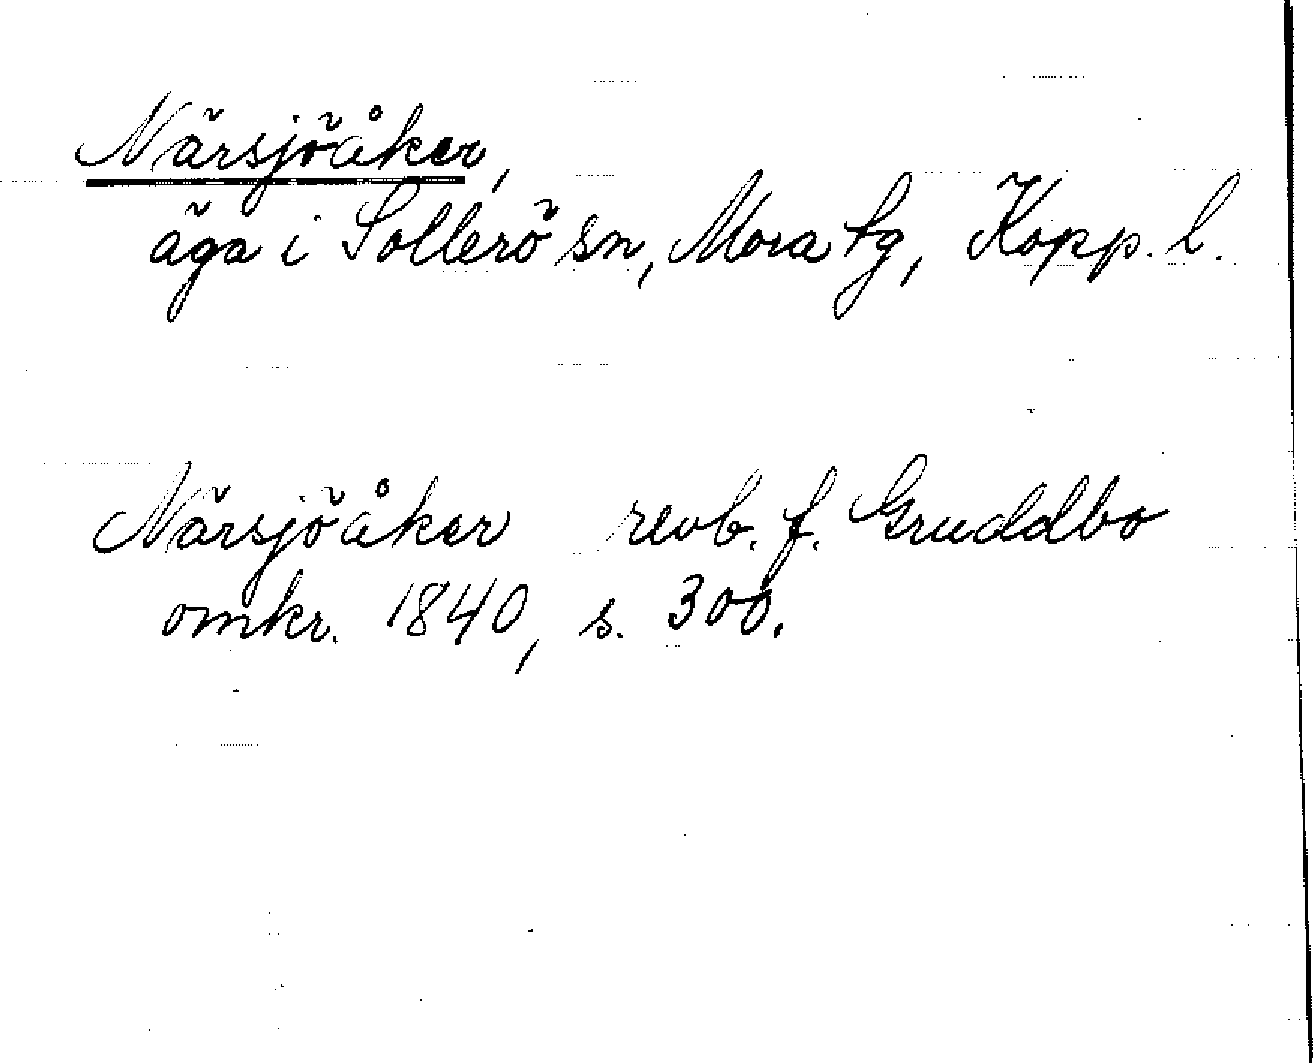 Närsjöåker,
äga i Sollerö sn, Mora tg, Kopp. l.
Närsjöåker revb. f. Gruddbo
omkr. 1840, s. 300.